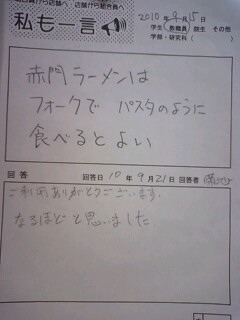 店舗から組合員へ
私も一言
2010年9月15日
学生 教職員 院生 その他
学部・研究科(
赤門ラーメンは
フォークで パスタのように
食べるとよい
回答 回答日 10年9月21日 回答者
ご利用ありがとうございます.
なるほど と思いました.